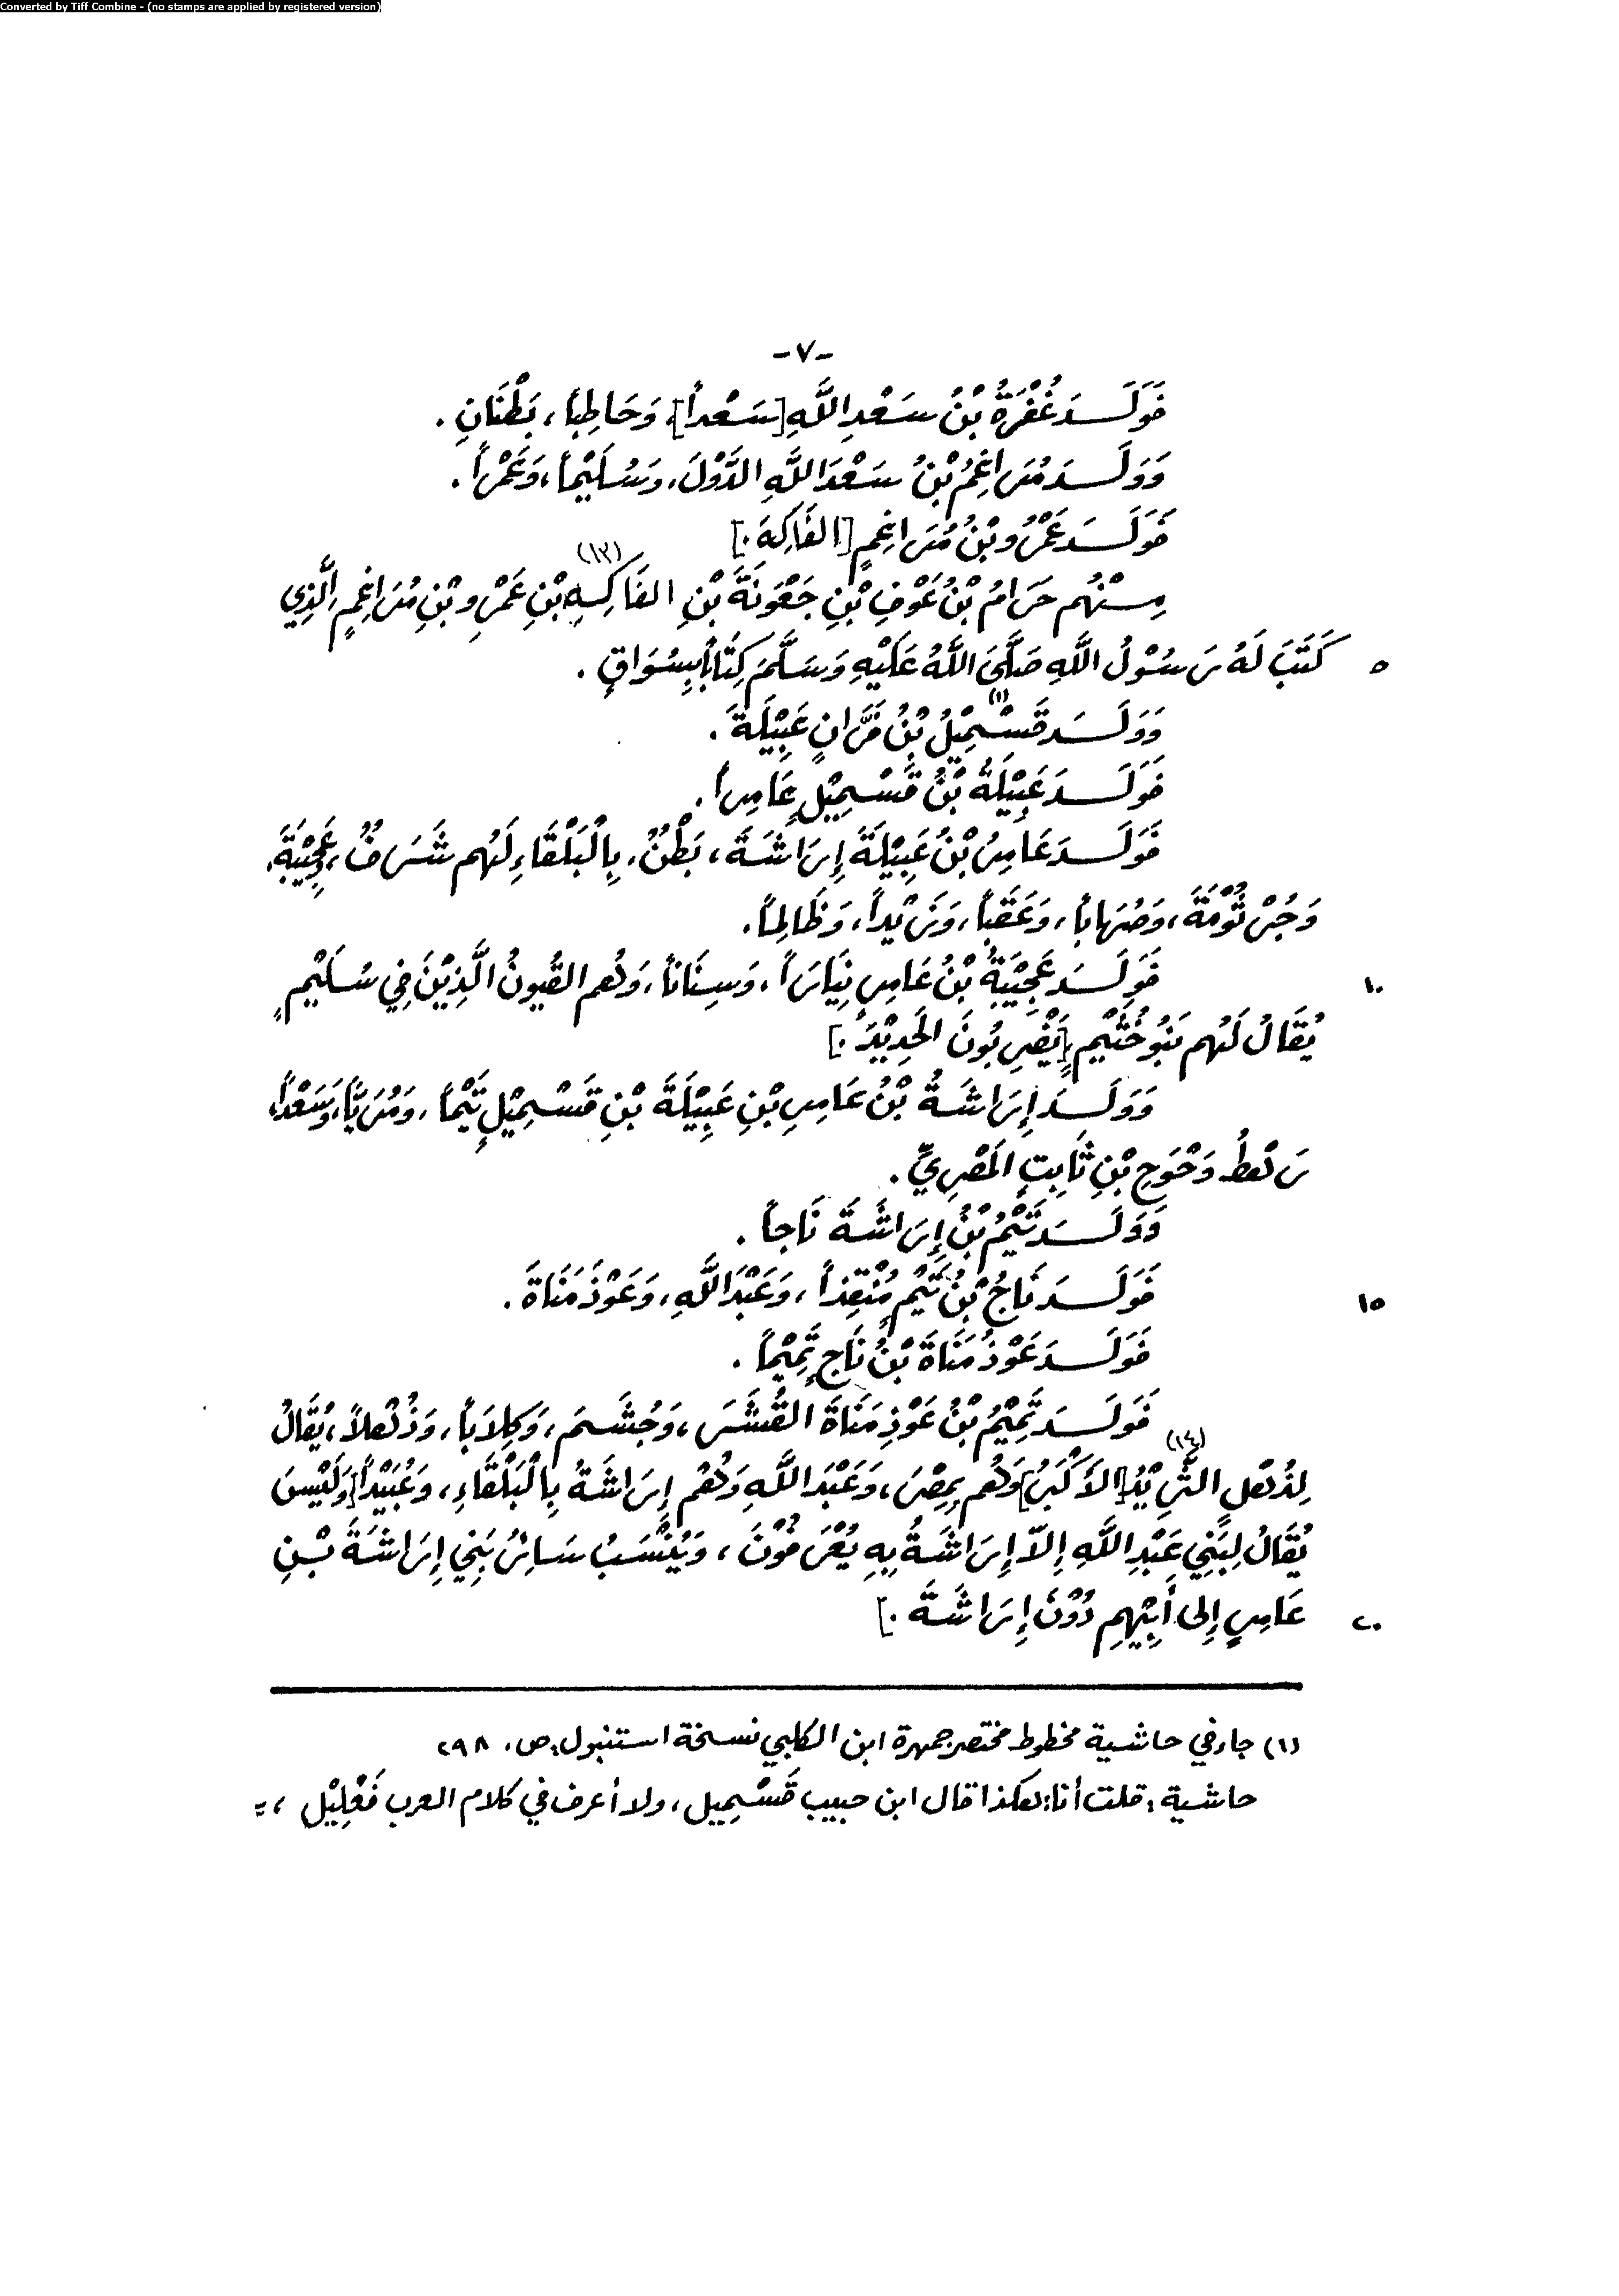 Converted by Tiff Combine - (no stamps are applied by registered version)
-٧-
فَوَلَـدَ غُفْرَةُ بْنُ سَعْدِ اللَّهِ [سَعْداً]، وَحَاطِباً، بَطْنَانِ .
وَوَلَـدَ مُرَاغِمُ بْنُ سَعْدِ اللَّهِ الدَّوْلَ، وَسُلَيْماً، وَعَمْراً .
فَوَلَـدَ عَمْرُو بْنُ مُرَاغِمٍ [الفَاكِهَ .]
مِـنْهُم حَرَامُ بْنُ عَوْفِ بْنِ جَعْوَنَةَ بْنِ الفَاكِـهِ (١٣) بْنِ عَمْرِو بْنِ مُرَاغِمٍ الَّذِي
٥ كَتَبَ لَهُ رَسُوْلُ اللَّهِ صَلَّى اللَّهُ عَلَيْهِ وَسَلَّمَ كِتَاباً بِسُوَاقٍ .
وَوَلَـدَ قَسْمِيْلُ (١) بْنُ فَرَّانٍ عَبِيْلَةَ .
فَوَلَـدَ عَبِيْلَةُ بْنُ قَسْمِيْلٍ عَامِراً .
فَوَلَـدَ عَامِرُ بْنُ عَبِيْلَةَ إِرَاشَـةَ، بَطْنٌ، بِالْبَلْقَاءِ لَهُم شَرَفٌ، وَعَجِيْبَةَ،
وَجُرْثُوْمَةَ، وَصُهَاباً، وَعَقَباً، وَزَيْداً، وَظَالِماً .
١٠ فَوَلَـدَ عَجِيْبَةُ بْنُ عَامِرٍ نِيَاراً، وَسِنَاناً، وَهُم القُيونُ الَّذِيْنَ فِي سُلَيْمٍ
يُقَالُ لَهُم بَنُو خُثَيْمٍ، [يَضْرِبُونَ الحَدِيْدَ .]
وَوَلَـدَ إِرَاشَـةُ بْنُ عَامِرِ بْنِ عَبِيْلَةَ بْنِ قَسْمِيْلٍ تَيْماً، وَمُرِيّاً، وَسَعْداً،
رَهْطُ وَحْوَحِ بْنِ ثَابِتٍ المَصْرِيِّ .
وَوَلَـدَ تَيْمُ بْنُ إِرَاشَـةَ نَاجاً .
١٥ فَوَلَـدَ نَاجُ بْنُ تَيْمٍ مُنْقِذاً، وَعَبْدَ اللَّهِ، وَعَوْذَ مَنَاةَ .
فَوَلَـدَ عَوْذُ مَنَاةَ بْنُ نَاجٍ تَمِيْماً .
فَوَلَـدَ تَمِيْمُ بْنُ عَوْذِ مَنَاةَ القُشَرَ، وَجُشَـمَ، وَكِلَاباً، وَذُهْلاً، يُقَالُ
لِذُهْلٍ الشَّرِيْدُ (١٤) [الأَكْبَرُ] وَهُم بِمِصْرَ، وَعَبْدَ اللَّهِ وَهُمْ إِرَاشَةُ بِالْبَلْقَاءِ، وَعُبَيْداً [وَلَيْسَ
يُقَالُ لِبَنِي عَبْدِ اللَّهِ إِلاَّ إِرَاشَـةُ بِهِ يُعْرَفُوْنَ، وَيُنْسَبُ سَائِرُ بَنِي إِرَاشَـةَ بْـنِ
٢٠ عَامِرٍ إِلى أَبِيْهِمِ دُوْنَ إِرَاشَـةَ .]
(١) جاء في حاشية مخطوط مختصر جمهرة ابن الكلبي نسخة استنبول: ص. ٢٩٨
حاشية: قلت أنا: هكذا قال ابن حبيب قَسْمِيل، ولا أعرف في كلام العرب فَعْلِيْل، =